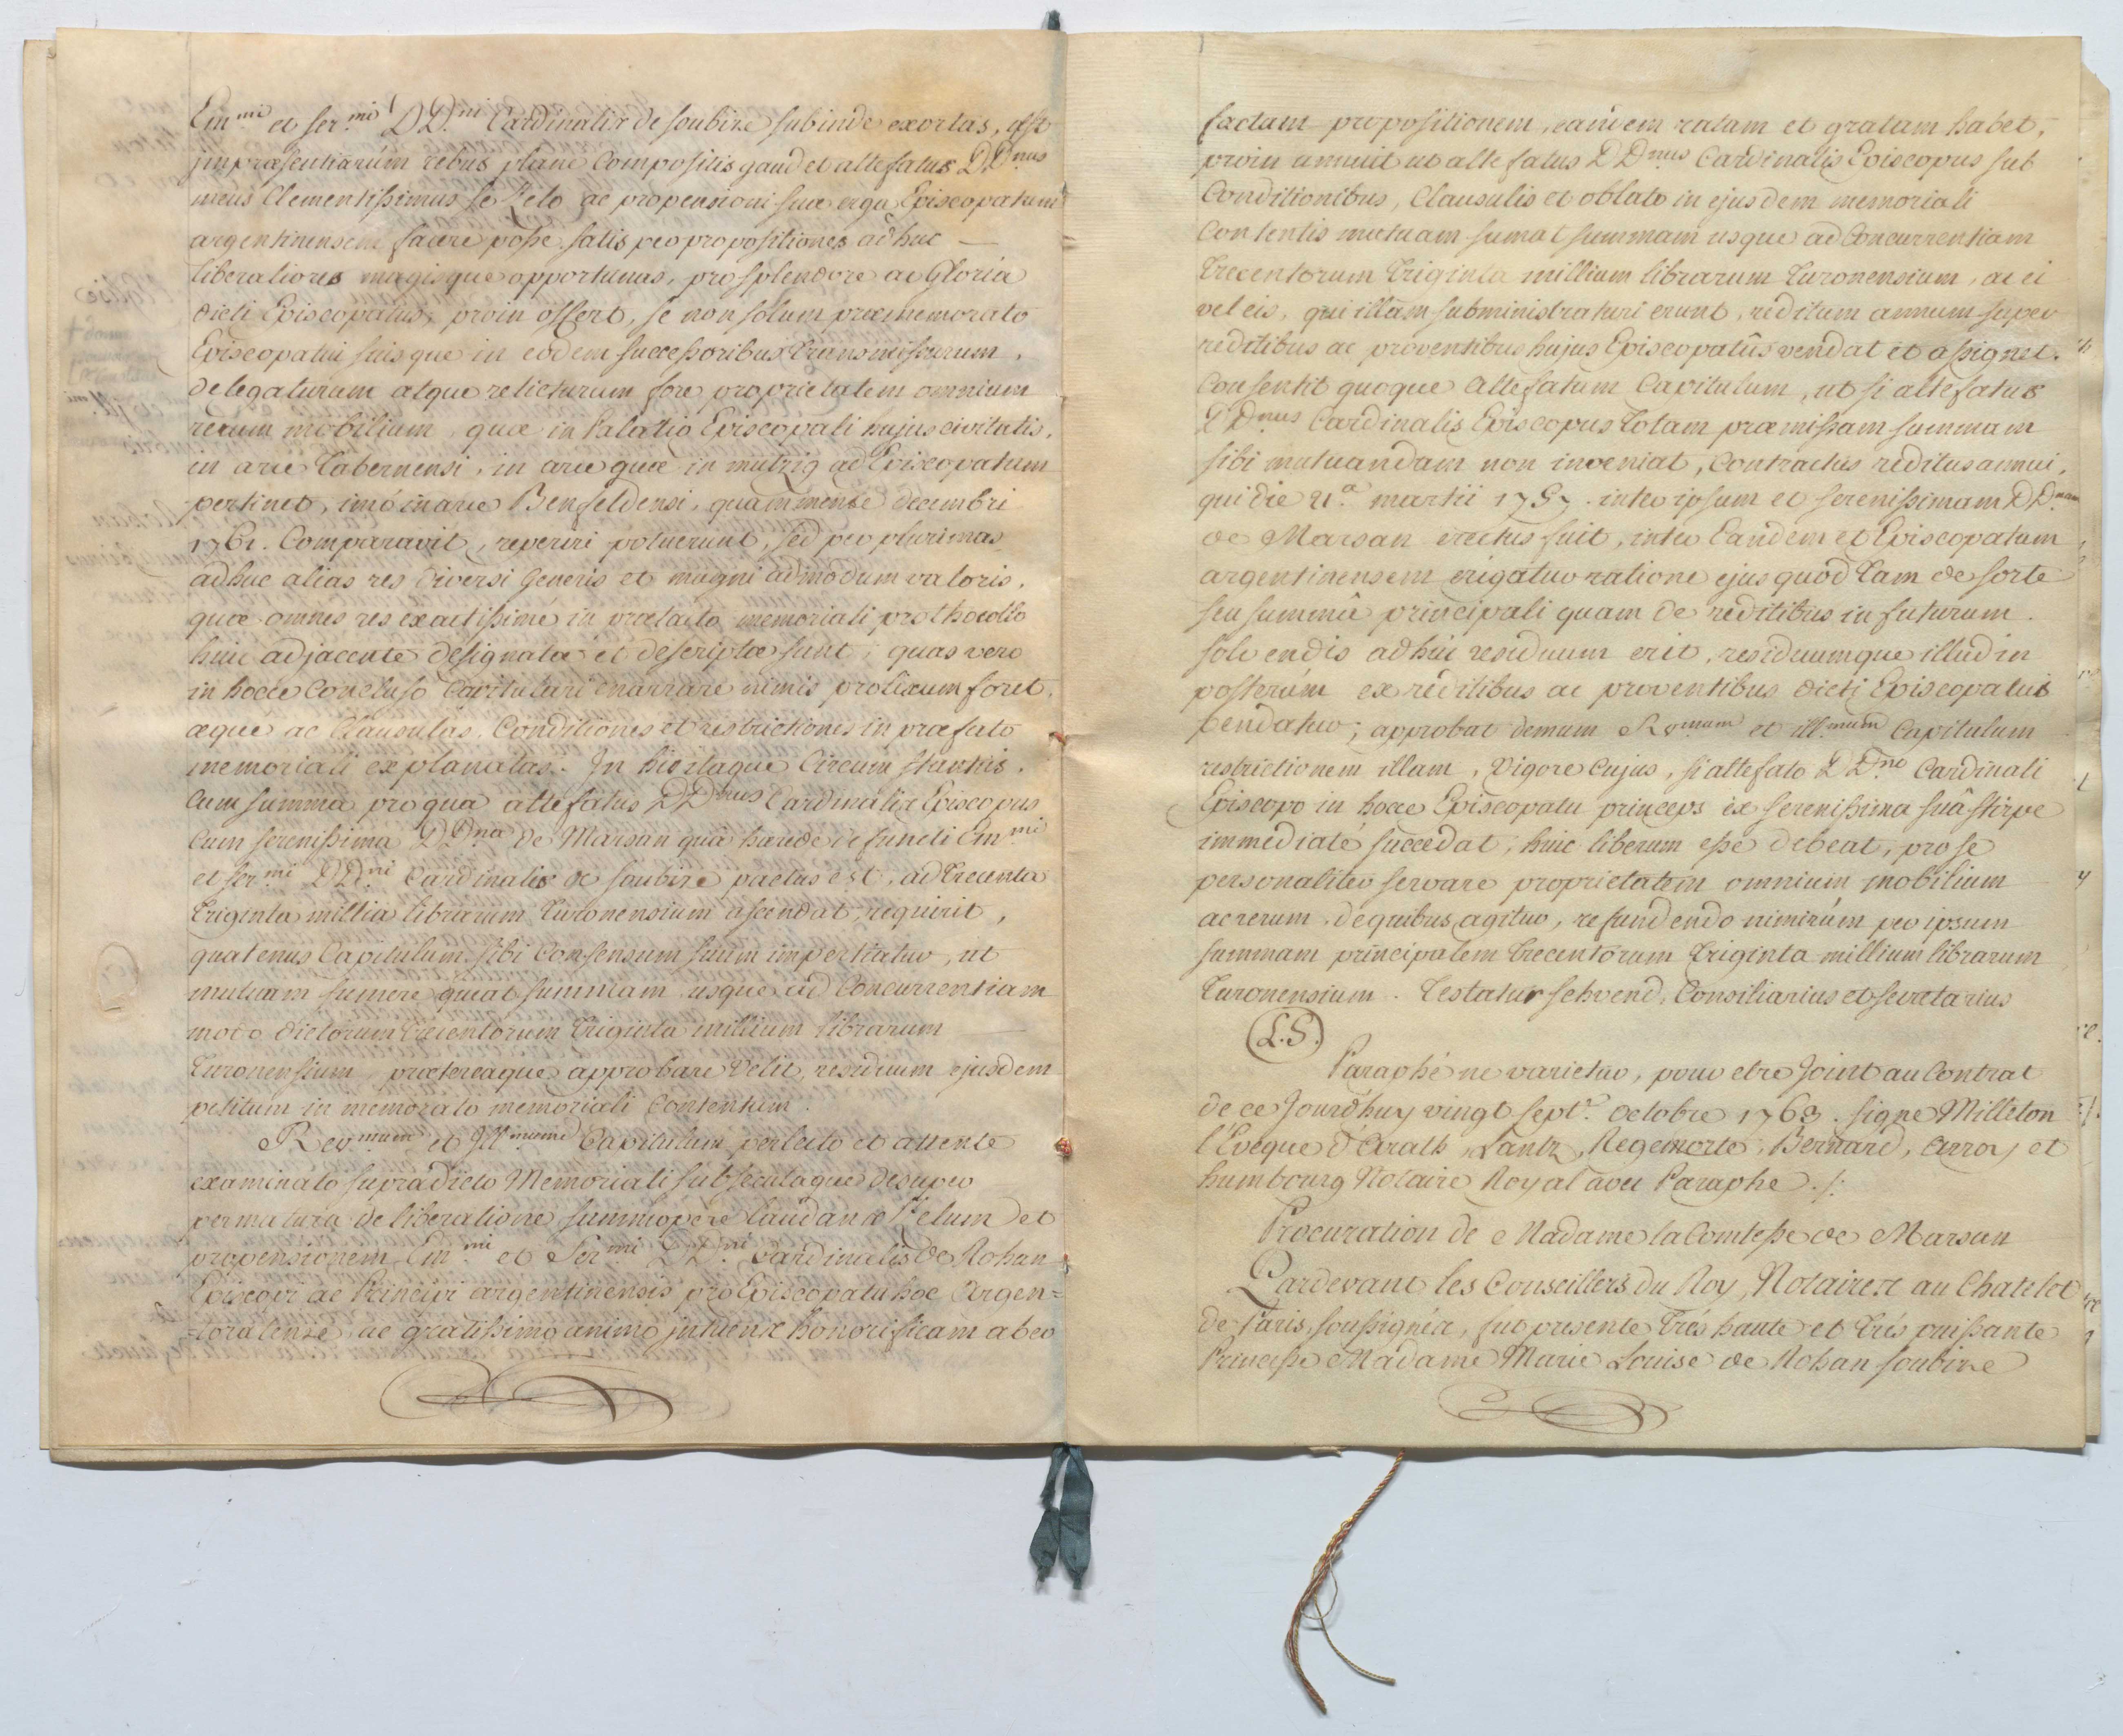 Em.mi et ser.mi DD.ni Cardinalis de soubize subinde exortas, ast
impræsentiarum rebus plane Compositis gaudet altefatus DD.nus
meus Clementissimus se Zelo ac propensioni suæ erga Episcopatum
argentinensem facere posse satis per propositiones adhuc —
liberaliores magisque opportunas, pro splendore ac Gloria
dicti Episcopatus, proin offert, se non solum præmemorato
Episcopatui suisque in eodem successoribus transmissurum,
delegaturum atque relicturum fore proprietatem omnium
rerum mobilium, quæ in Palatio Episcopali hujus civitatis,
in arce Tabernensi, in arce quæ in mutzig ad Episcopatum
pertinet, imò in arce Benfeldensi, quam mense decembri
1761. Comparavit, reperiri potuerunt, sed per plurimas
adhuc alias res diversi Generis et magni admodum valoris,
quæ omnes res exactissimé in prætacto memoriali prothocollo
huic adjacente designatæ et descriptæ sunt; quas vero
in hocce Concluso Capitulari enarrare nimis prolixum foret,
æque ac Clausulas, Conditiones et restrictiones in præfato
memoriali explanatas. In his itaque Circumstantiis,
Cum summa pro qua altefatus DD.nus Cardinalis Episcopus
Cum serenissima DD.na de Marsan quà hærede defuncti Em.mi
et ser.mi DD.ni Cardinalis de soubize pactus est, ad trecenta
triginta millia librarum turonensium ascendat, requirit,
quatenus Capitulum sibi Consensum suum impertiatur, ut
mutuam sumere queat summam usque ad Concurrentiam
moto dictorum trecentorum triginta millium librarum —
Turonensium, prætereaque approbare velit, residuum ejusdem
petitum in memorato memoriali Contentum.
Rev.mum et Ill.mum Capitulum perlecto et attente
examinato supradicto Memoriali subsecutaque desuper
permatura deliberatione summopere laudando Zelum et
propensionem Em.mi et Ser.mi DD.ni Cardinalis de Rohan
Episcopi ac Principi argentinensis pro Episcopatu hoc Argen=
=toratense, ac gratissimo animo intuens honorificam ab eo
factam propositionem, eamdem ratam et gratam habet,
proin annuit ut altefatus DD.nus Cardinalis Episcopus sub
Conditionibus, Clausulis et oblato in ejusdem memoriali
Contentis mutuam sumat summam usque ad Concurrentiam
Trecentorum triginta millium librarum turonensium, ac ei
vel eis, qui illam subministraturi erunt, reditum annum super
reditibus ac proventibus hujus Episcopatûs vendat et assignet.
Consentit quoque altefatum Capitulum, ut si altefatus
DD.nus Cardinalis Episcopus totam præmissam summam
sibi mutuandam non inveniat, Contractus reditus annui,
qui die 21.a martii 1757. inter ipsum et serenissimam DD.nam
de Marsan erectus fuit, inter Eandem et Episcopatum
argentinensem erigatur ratione ejus quod tam de sorte
seu summâ principali quam de reditibus in futurum
solvendis adhuc residuum erit, residuumque illud in
posterúm ex reditibus ac proventibus dicti Episcopatus
pendatur; approbat demum Rv.mum et ill.mum Capitulum
restrictionem illam, vigore cujus, si altefato DD.no Cardinali
Episcopo in hocce Episcopatu princeps ex serenissima suâ stirpe
immédiaté succedat, huic liberum esse debeat, pro se
personaliter servare proprietatem omnium mobilium
ac rerum de quibus agitur, refundendo nimirúm per ipsum
summam principalem trecentorum triginta millium librarum
Turonensium. Testatur sehvend, Consiliarius et secretarius
(L.S.)
Paraphé ne varietur, pour etre Joint au Contrat
de ce Jourd'huy vingt sept.e octobre 1763. signé Milleton
l'Eveque d'arath, Lantz, Regemorte, Bernard, arroy et
humbourg Notaire Royal avec Paraphe./.
Procuration de Madame la Comtesse de Marsan
Pardevant les Conseillers du Roy, Notaires au Chatelet
de Paris, soussignés, fut presente très haute et très puissante
Princesse Madame Marie Louise de Rohan soubize